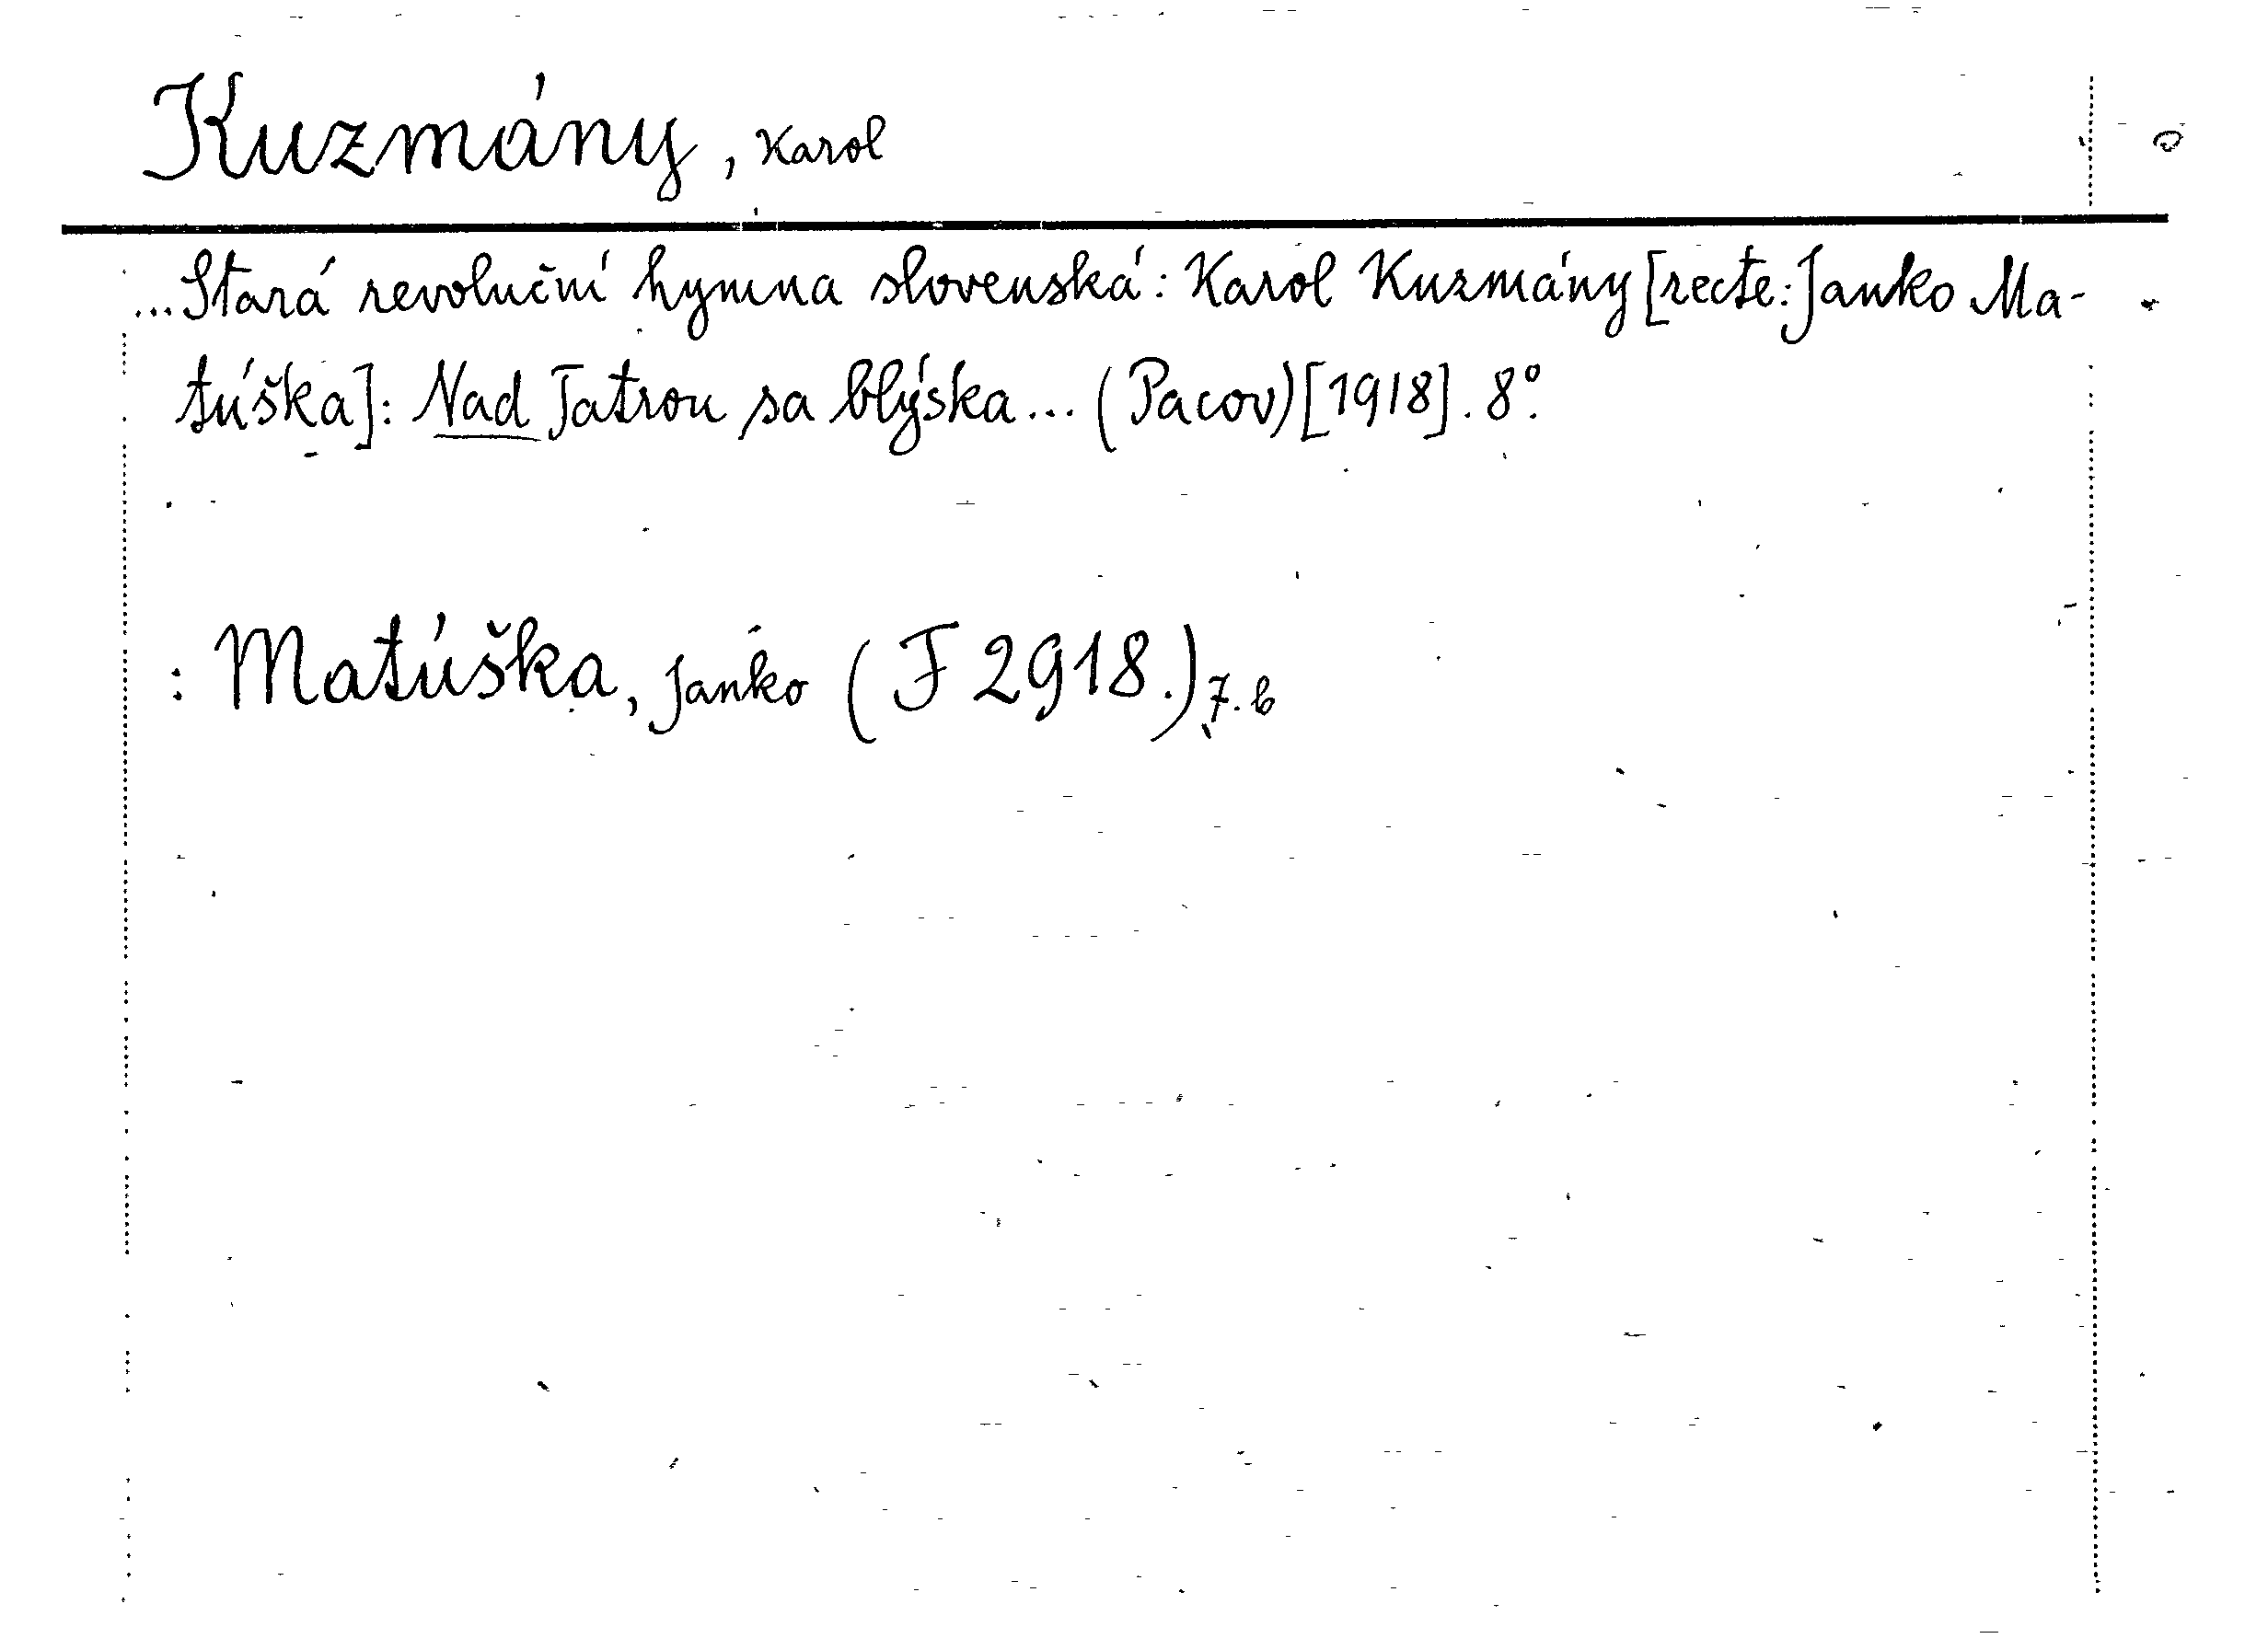 Kuzmány, Karol
...Stará revoluční hymna slovenská: Karol Kuzmány [recte: Janko Ma-
túška]: Nad Tatrou sa blýska... (Pacov) [1918]. 8°.
: Matúška, Janko (F 2918.) 7. b